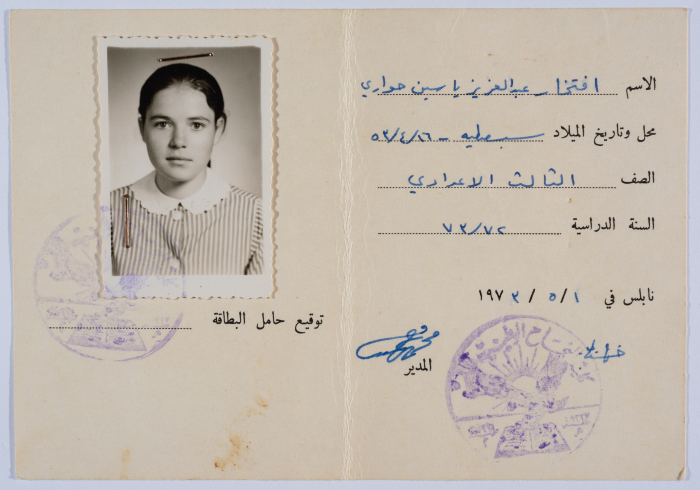 الاسم افتخار عبدالعزيز ياسين حواري
محل وتاريخ الميلاد سبسطيه - ٥٣/٤/١٦
الصف الثالث الاعدادي
السنة الدراسية ٧٣/٧٢
نابلس في ١ / ٥ / ١٩٧٣
المدير
توقيع حامل البطاقة